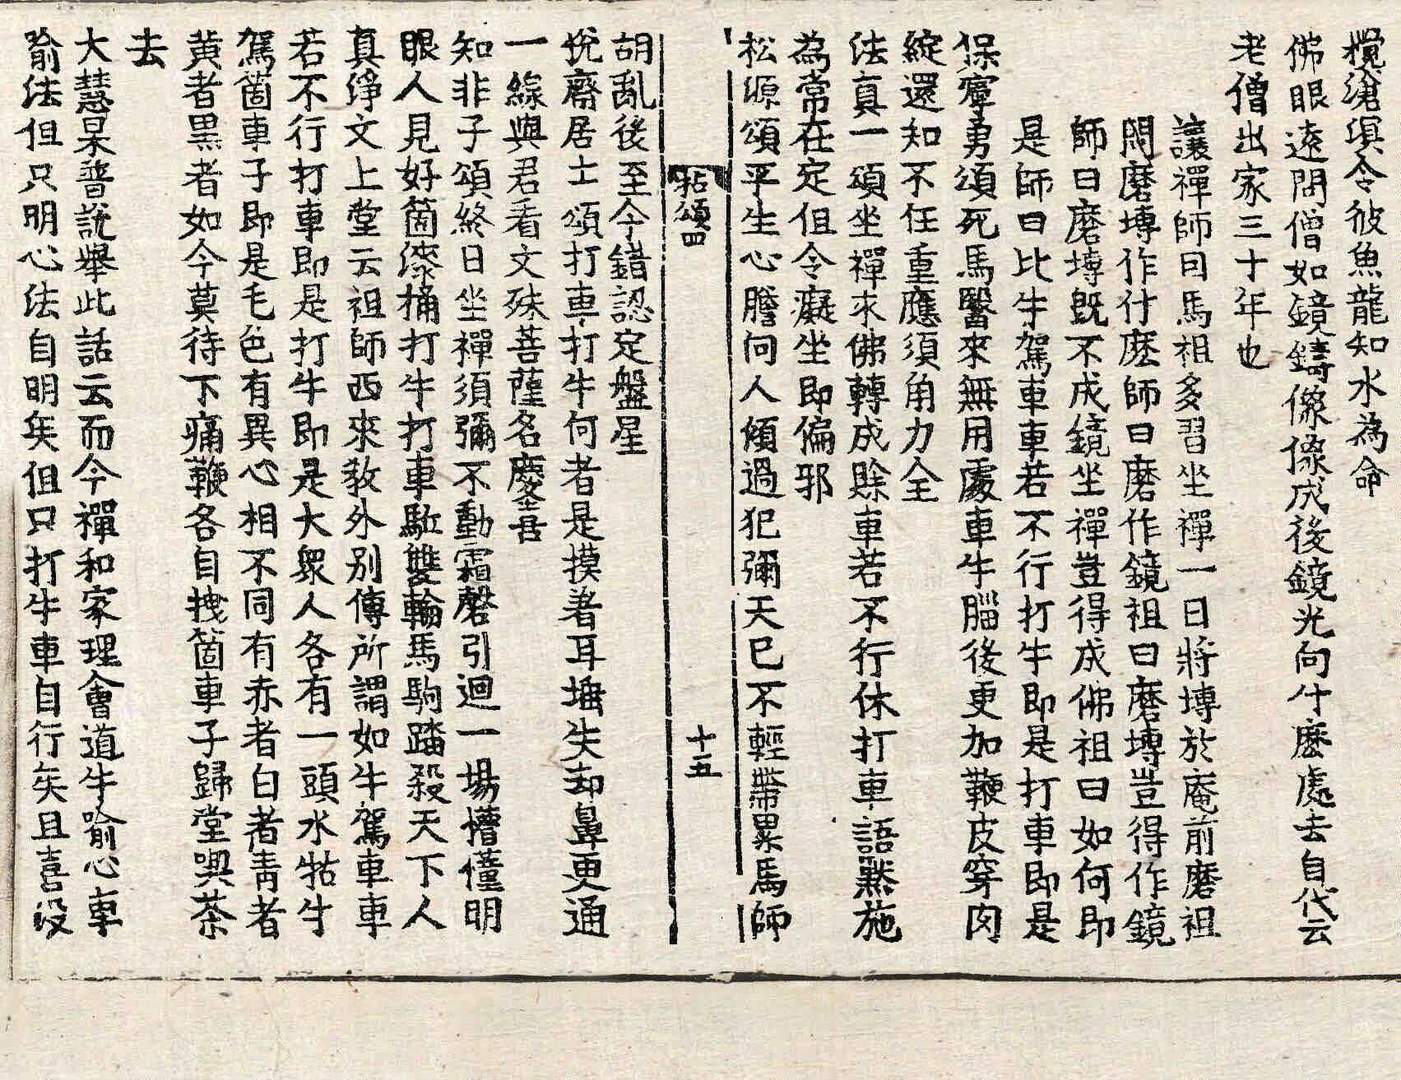 攪滄溟令彼魚龍知水為命
佛眼遠問僧如鏡鑄像像成後鏡光向什麽處去自代云
老僧出家三十年也
讓禪師因馬祖多習坐禪一日將塼於庵前磨祖
問磨塼作什麽師曰磨作鏡祖曰磨塼豈得作鏡
師曰磨塼旣不成鏡坐禪豈得成佛祖曰如何即
是師曰比牛駕車車若不行打牛即是打車即是
保寧勇頌死馬醫來無用處車牛腦後更加鞭皮穿肉
綻還知不任重應須角力全
法真一頌坐禪求佛轉成賖車若不行休打車語黙施
為常在定伹令癡坐即偏邪
松源頌平生心膽向人傾過犯彌天已不輕帶累馬師
拈頌四
十五
胡亂後至今錯認定盤星
悅齋居士頌打車打牛何者是摸著耳垛失却鼻更通
一線與君看文殊菩薩名慶喜
知非子頌終日坐禪須彌不動霜磬引迴一場懵懂明
眼人見好箇漆桶打牛打車駈雙輪馬駒踏殺天下人
真淨文上堂云祖師西來敎外別傳所謂如牛駕車車
若不行打車即是打牛即是大衆人各有一頭水牯牛
駕箇車子即是毛色有異心相不同有赤者白者青者
黄者黒者如今莫待下痛鞭各自拽箇車子歸堂喫茶
去
大慧杲普說擧此話云而今禪和家理會道牛喻心車
喻法伹只明心法自明矣伹只打牛車自行矣且喜沒